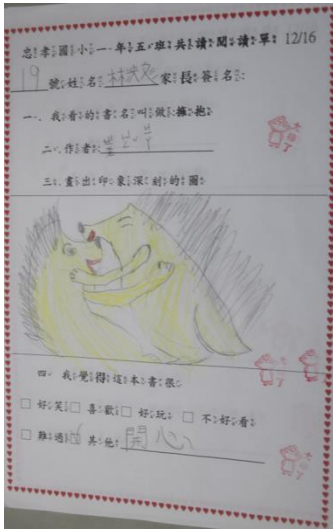 忠孝國小一年五班共讀閱讀單 12/16
19 號姓名:林 家長簽名:
一、我看的書名叫做擁抱
二、作者:
三、畫出印象深刻的圖:
四、我覺得這本書很:
□ 好笑 □ 喜歡 □ 好玩 □ 不好看
□ 難過 ☑ 其他: 開心